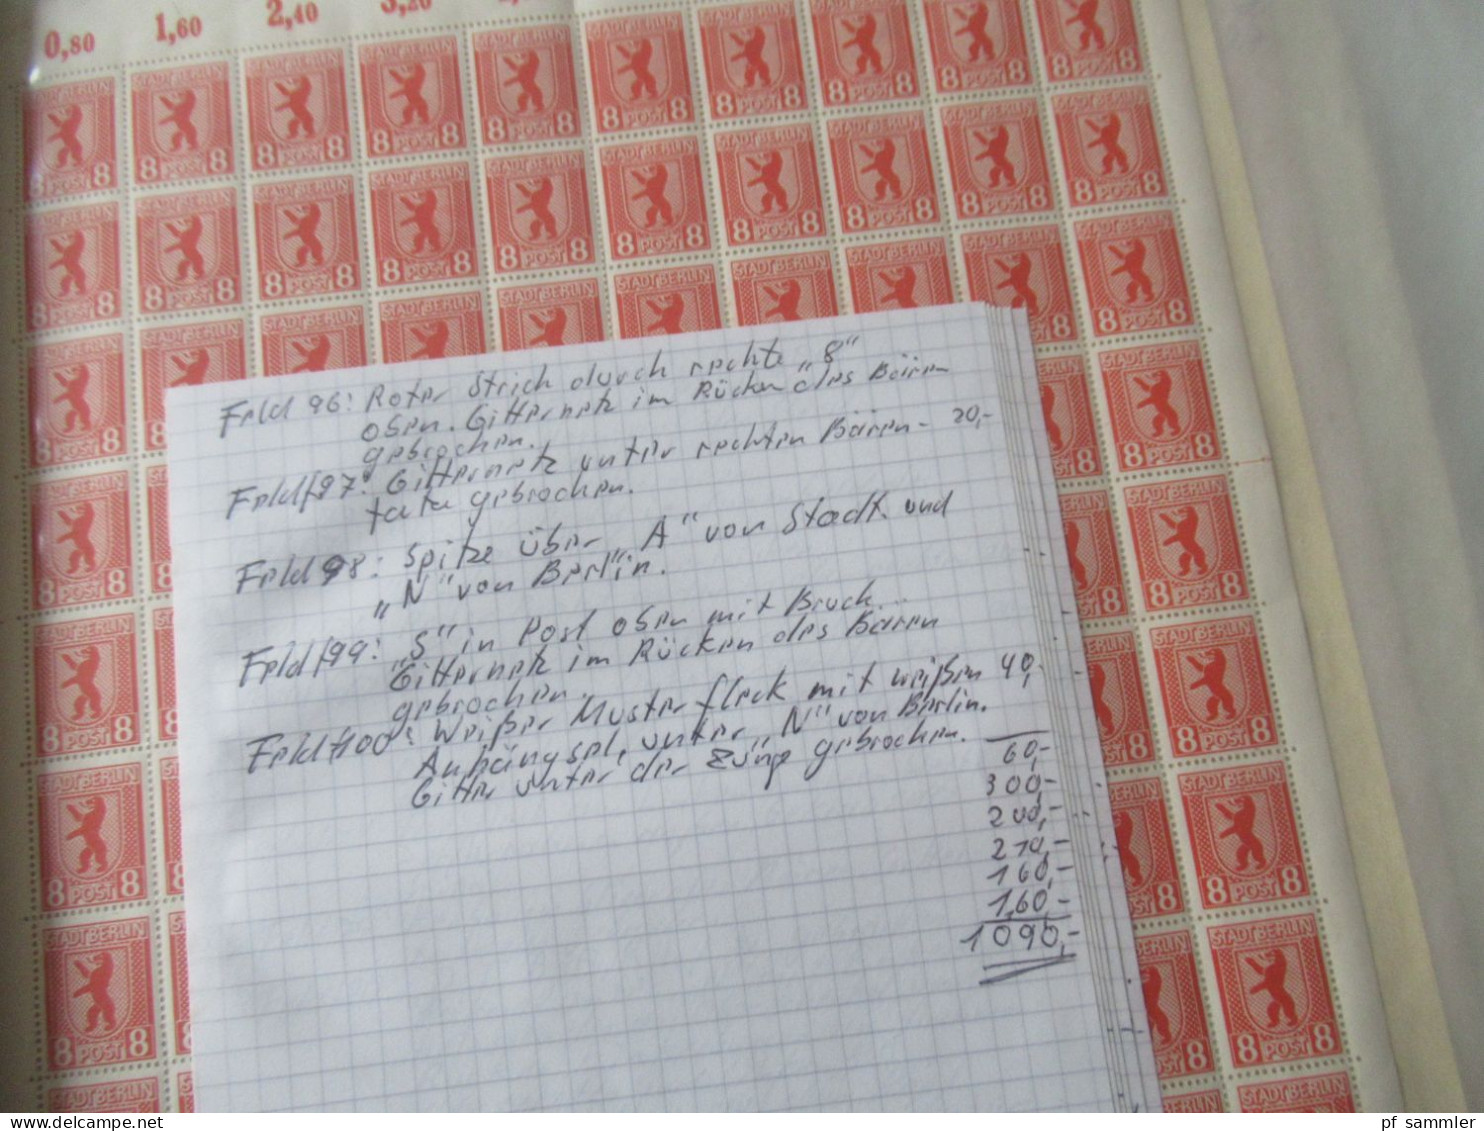 0,80 1,60 2,40 3,20
STADT BERLIN
8 POST 8
Feld 96: Roter Strich durch rechte „8"
oben. Gitternetz im Rücken des Bären
gebrochen.
Feld 97: Gitternetz unter rechten Bären- 20,-
tatze gebrochen.
Feld 98: Spitze über „A" von Stadt und
„N" von Berlin.
Feld 99: „S" in Post oben mit Bruch.
Gitternetz im Rücken des Bären
gebrochen.
Feld 100: Weißer Musterfleck mit weißen 40,-
Anhängsel, unter „N" von Berlin.
Gitter unter der Zunge gebrochen.
60,-
300,-
200,-
210,-
160,-
160,-
1090,-
pf sammler
delcampe.net